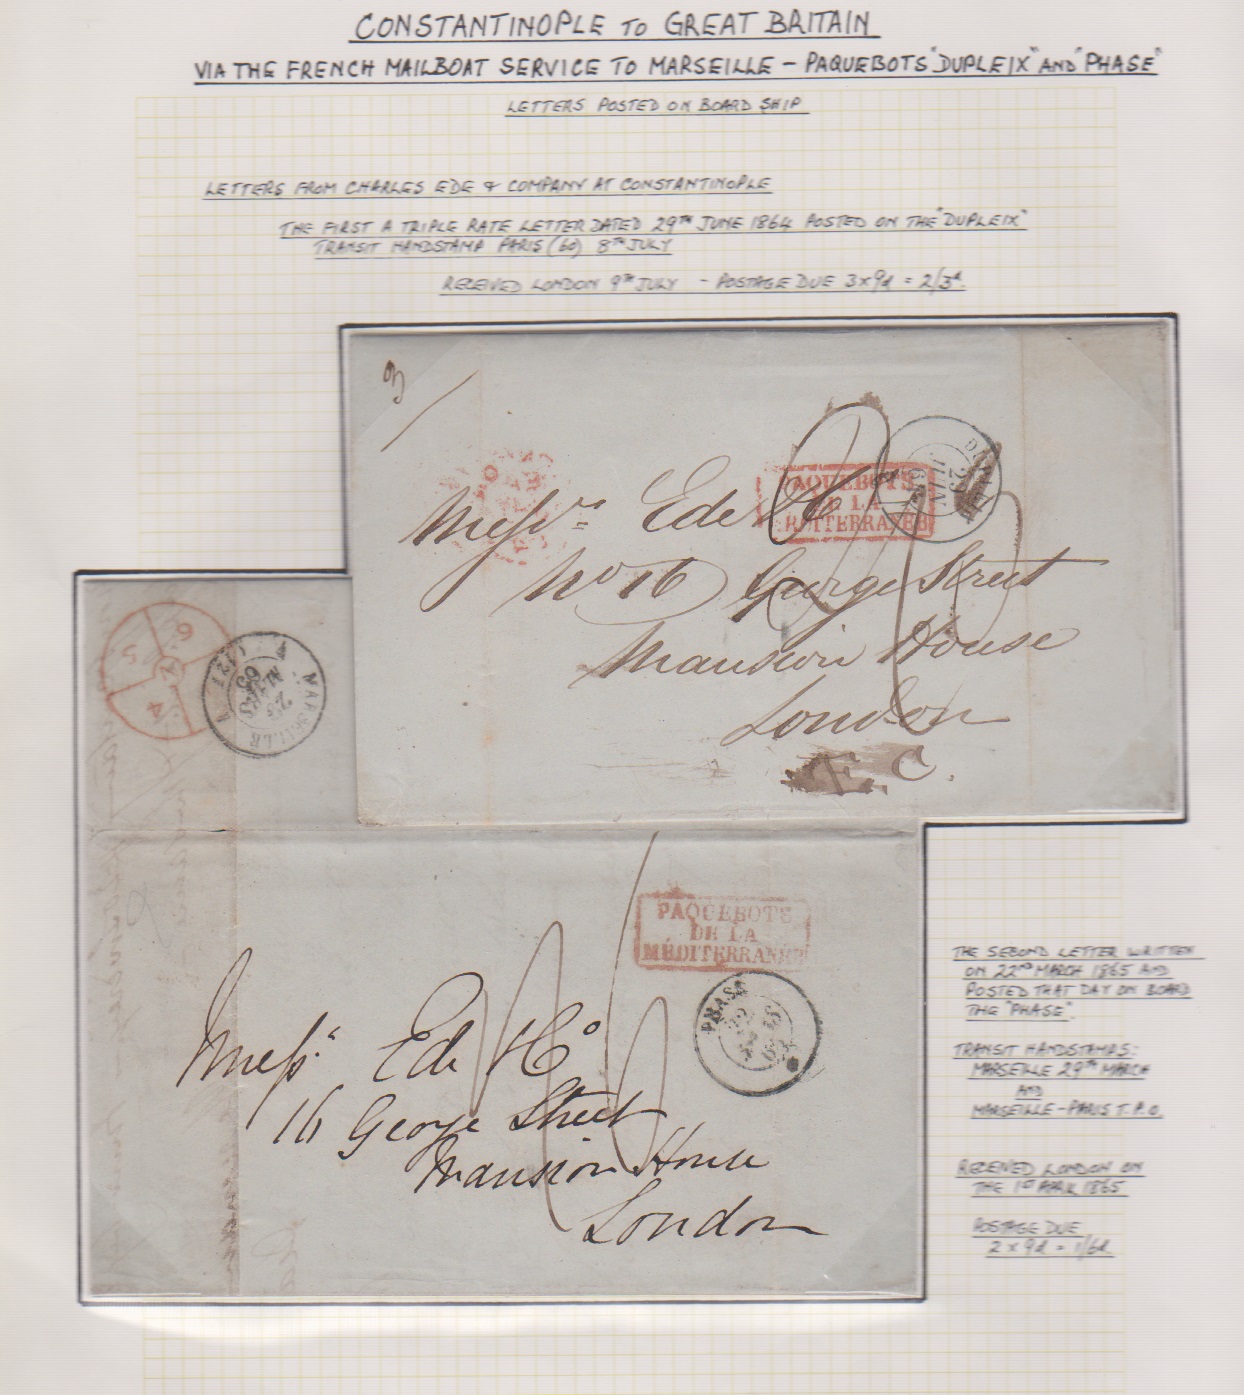 CONSTANTINOPLE TO GREAT BRITAIN
VIA THE FRENCH MAILBOAT SERVICE TO MARSEILLE – PAQUEBOTS "DUPLEIX" AND "PHASE"
LETTERS POSTED ON BOARD SHIP
LETTERS FROM CHARLES EDE & COMPANY AT CONSTANTINOPLE
THE FIRST A TRIPLE RATE LETTER DATED 29TH JUNE 1864 POSTED ON THE "DUPLEIX"
TRANSIT HANDSTAMP PARIS (60) 8TH JULY
RECEIVED LONDON 9TH JULY – POSTAGE DUE 3x9d = 2/3d.
3/
PAQUEBOTS
DE LA
MEDITERRANEE
29
JUIN
Messrs Ede & Co
No 16 George Street
Mansion House
London
E.C.
6
5
4
MARSEILLE
29
MARS
65
PAQUEBOTS
DE LA
MÉDITERRANÉE
PHASE
Messrs Ede & Co
16 George Street
Mansion House
London
THE SECOND LETTER WRITTEN
ON 22ND MARCH 1865 AND
POSTED THAT DAY ON BOARD
THE "PHASE".
TRANSIT HANDSTAMPS:
MARSEILLE 29TH MARCH
AND
MARSEILLE – PARIS T.P.O.
RECEIVED LONDON ON
THE 1ST APRIL 1865
POSTAGE DUE
2 x 9d = 1/6d